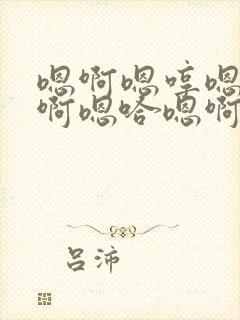 嗯啊嗯哼嗯
啊嗯哈嗯啊
吕沛